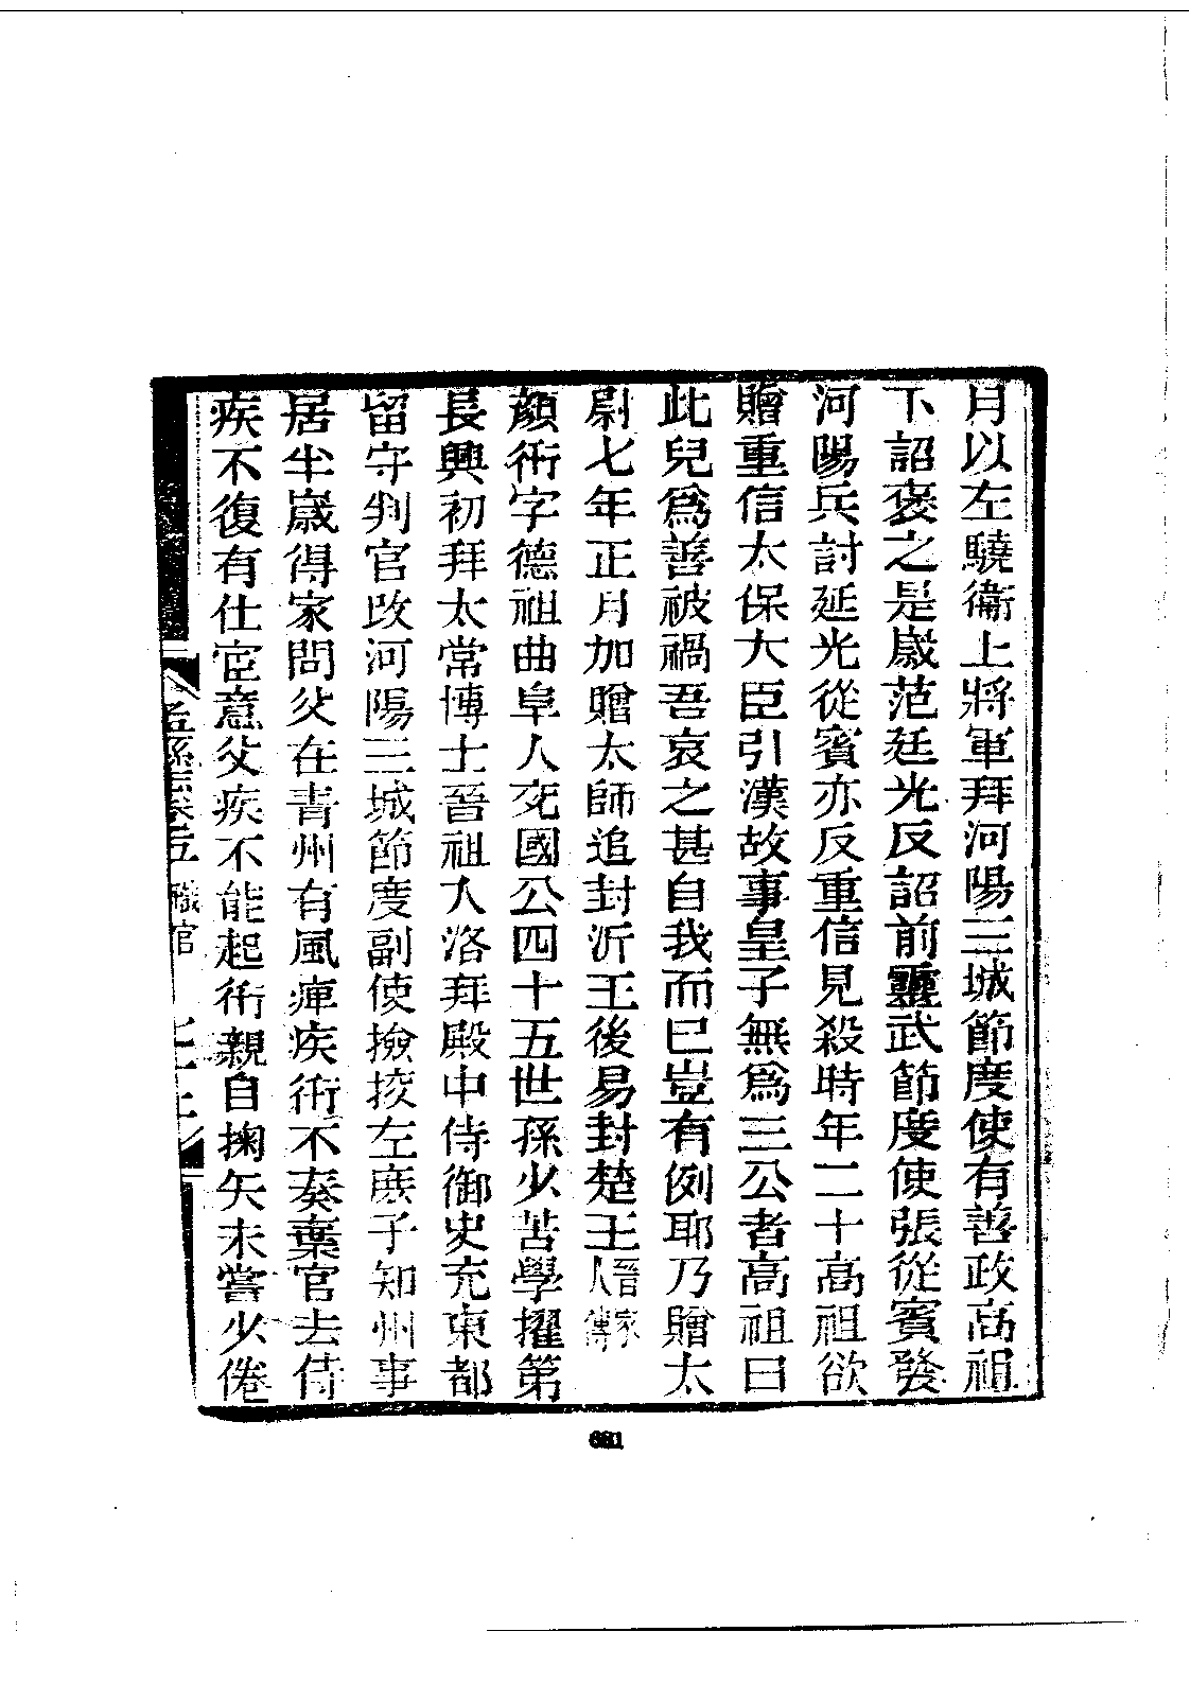 月以左驍衛上將軍拜河陽三城節度使有善政高祖
下詔褒之是歲范延光反詔前靈武節度使張從賓發
河陽兵討延光從賓亦反重信見殺時年二十高祖欲
贈重信太保大臣引漢故事皇子無爲三公者高祖曰
此兒爲善被禍吾哀之甚自我而已豈有例耶乃贈太
尉七年正月加贈太師追封沂王後易封楚王晉家人傳
顏衎字德祖曲阜人兗國公四十五世孫少苦學擢第
長興初拜太常博士晉祖入洛拜殿中侍御史充東都
留守判官改河陽三城節度副使撿挍左庶子知州事
居半歲得家問父在青州有風痺疾衎不奏棄官去侍
疾不復有仕宦意父疾不能起衎親自掬矢未嘗少倦
孟縣志卷五 職官
681